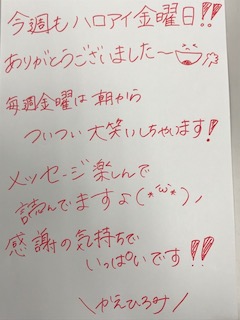 今週もハロアイ金曜日!!
ありがとうございました〜
毎週金曜は朝から
ついつい大笑いしちゃいます!
メッセージ楽しんで
読んでますよ(*'ω'*)ノ
感謝の気持ちで
いっぱいです!!
\かえひろみ/